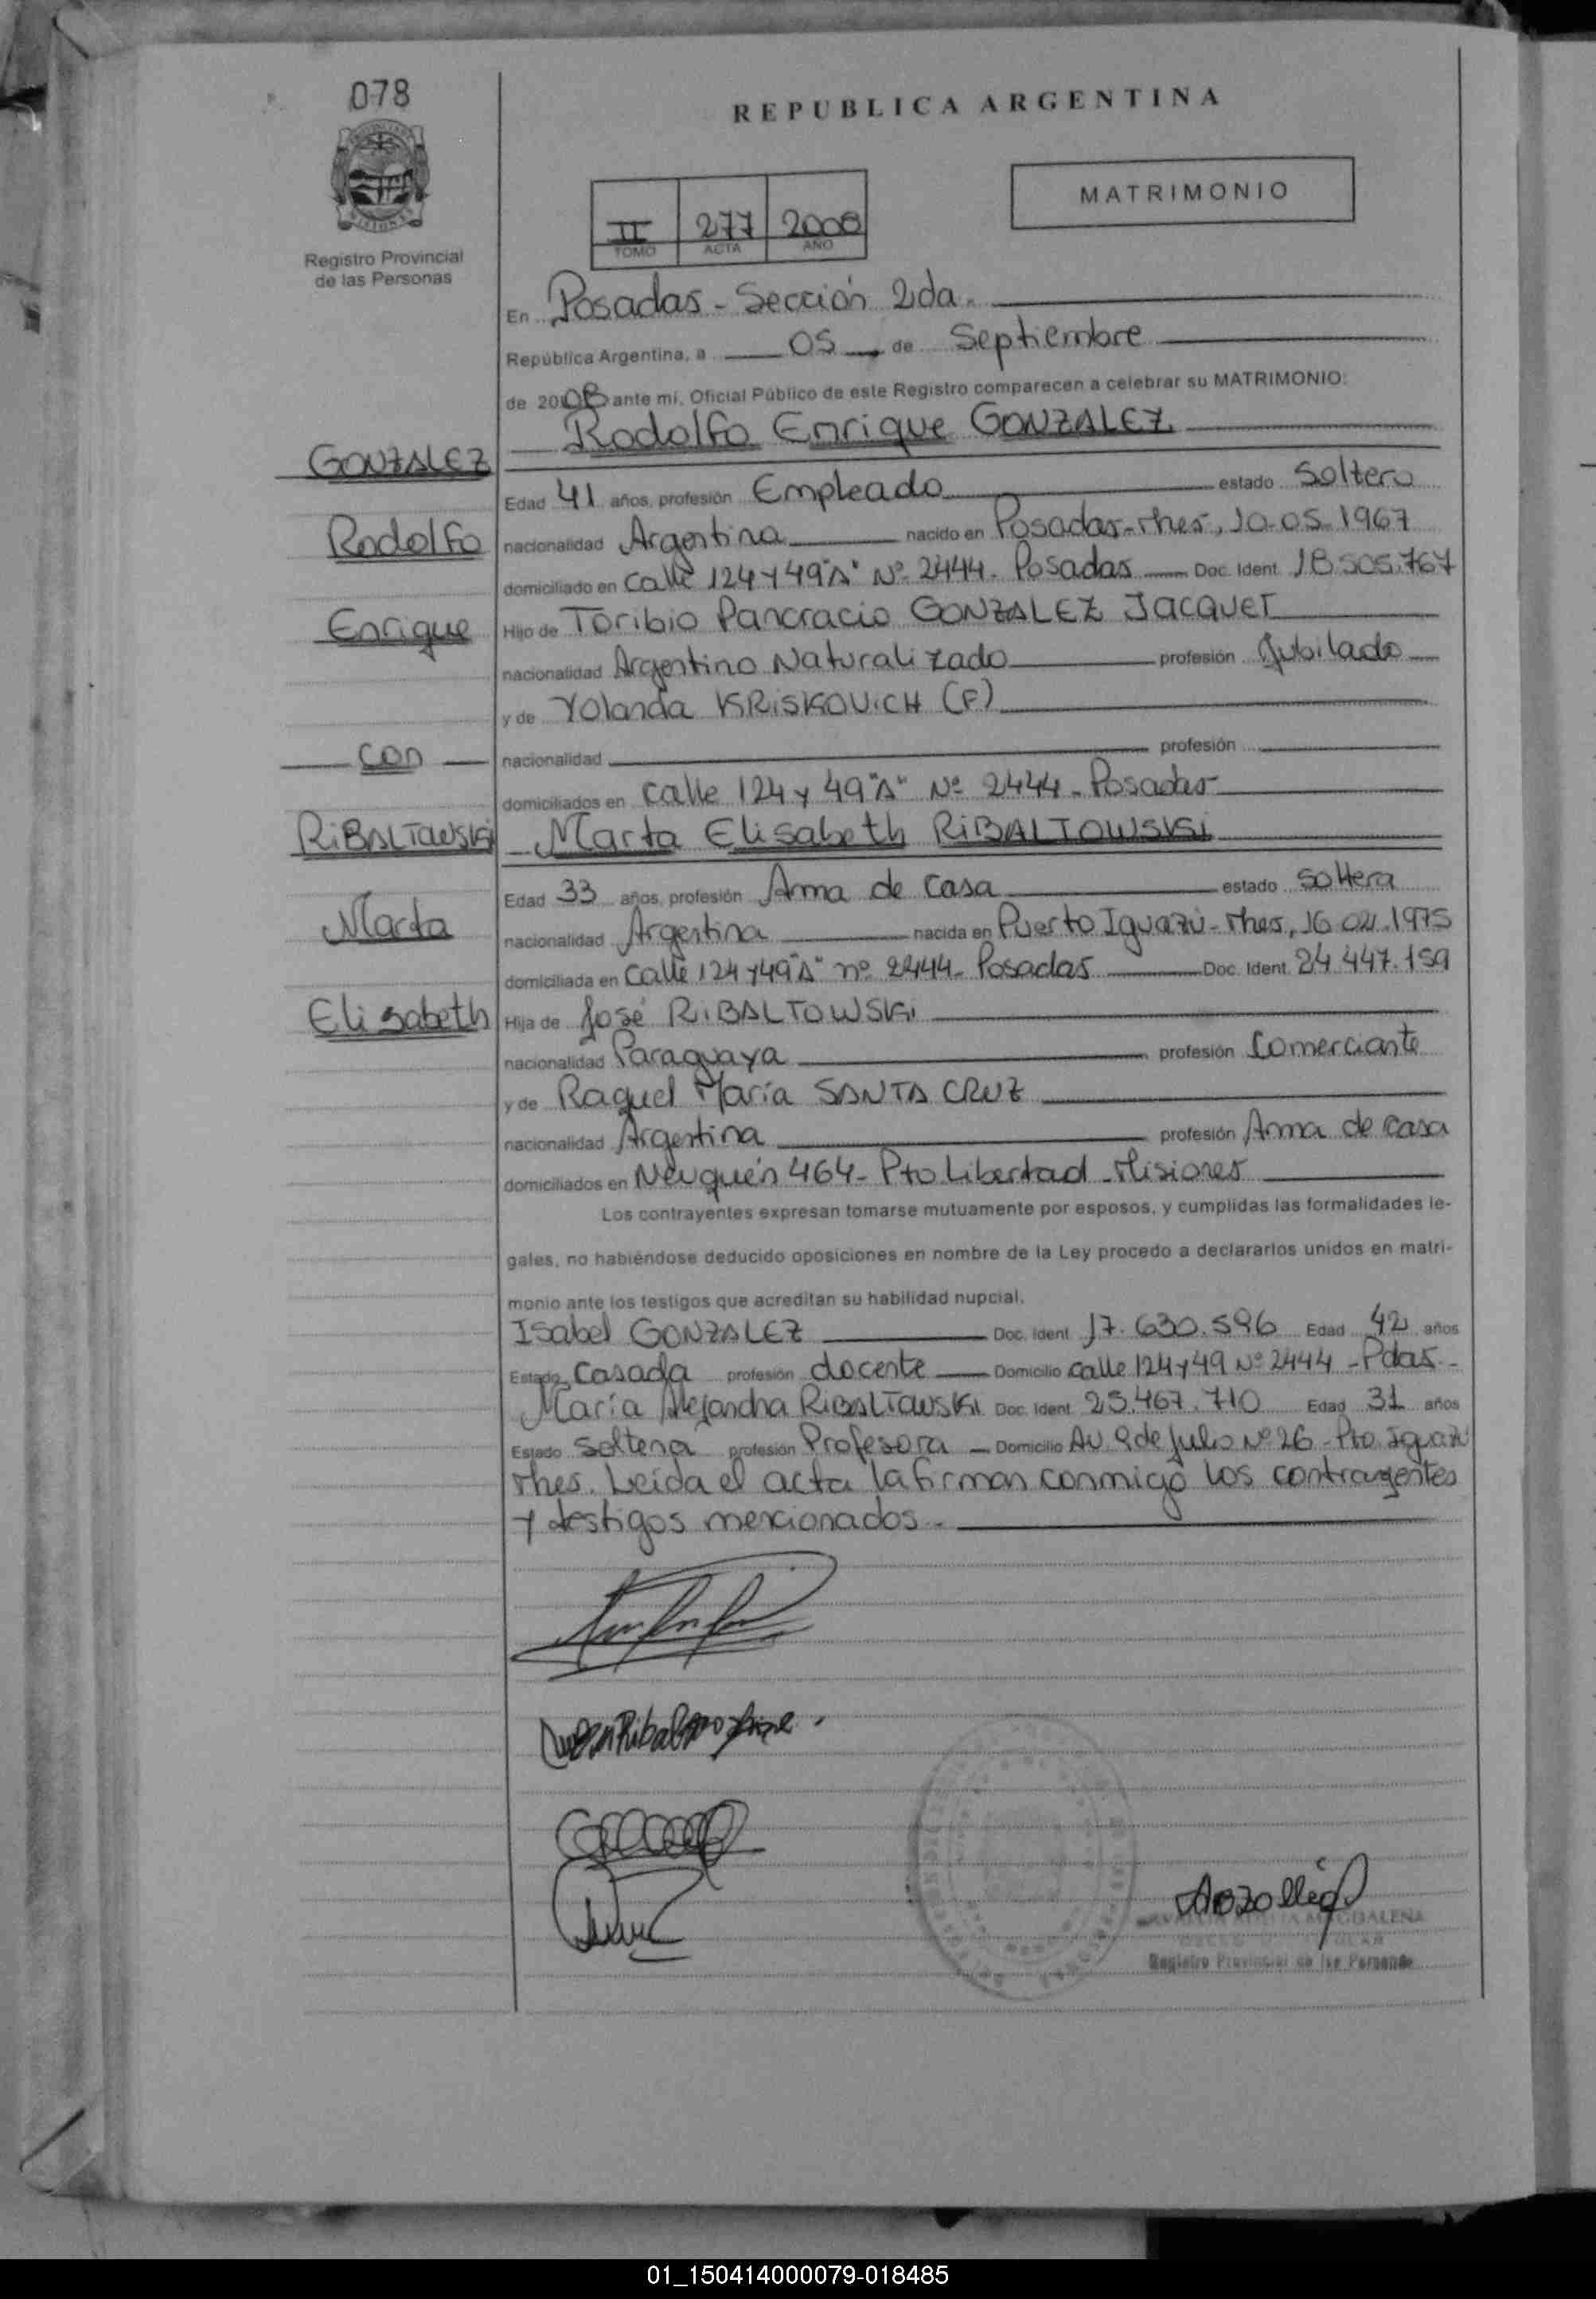 078
REPUBLICA ARGENTINA
MATRIMONIO
II 277 2008
TOMO ACTA AÑO
Registro Provincial
de las Personas
En Posadas - Sección 2da.
República Argentina, a 05 de Septiembre
de 2008 ante mí, Oficial Público de este Registro comparecen a celebrar su MATRIMONIO:
Rodolfo Enrique GONZALEZ
GONZALEZ
Edad 41 años, profesión Empleado estado Soltero
Rodolfo
nacionalidad Argentina nacido en Posadas-Mnes, 10-05-1967
domiciliado en Calle 124 y 49"A" Nº 2444- Posadas Doc. Ident. 18.505.767
Enrique
Hijo de Toribio Pancracio GONZALEZ JACQUET
nacionalidad Argentino Naturalizado profesión Jubilado
y de Yolanda KRISKOVICH (F)
con
nacionalidad profesión
domiciliados en calle 124 y 49"A" Nº 2444- Posadas
RIBALTOWSKI
Marta Elisabeth RIBALTOWSKI
Edad 33 años, profesión Ama de casa estado Soltera
Marta
nacionalidad Argentina nacida en Puerto Iguazú-Mnes, 16.02.1975
domiciliada en Calle 124 y 49"A" nº 2444- Posadas Doc. Ident. 24.447.159
Elisabeth
Hija de José RIBALTOWSKI
nacionalidad Paraguaya profesión Comerciante
y de Raquel María SANTA CRUZ
nacionalidad Argentina profesión Ama de casa
domiciliados en Neuquén 464- Pto Libertad - Misiones
Los contrayentes expresan tomarse mutuamente por esposos, y cumplidas las formalidades le-
gales, no habiéndose deducido oposiciones en nombre de la Ley procedo a declararlos unidos en matri-
monio ante los testigos que acreditan su habilidad nupcial.
Isabel GONZALEZ Doc. Ident. 17.630.596 Edad 42 años
Estado Casada profesión docente Domicilio calle 124 y 49 Nº 2444 - Pdas.-
María Alejandra RIBALTOWSKI Doc. Ident. 25.467.710 Edad 31 años
Estado Soltera profesión Profesora Domicilio Av. 9 de Julio Nº 26 - Pto. Iguazú
Mnes. Leida el acta la firman conmigo los contrayentes
y testigos mencionados.-
MAGDALENA
Registro Provincial de las Personas
01_150414000079-018485